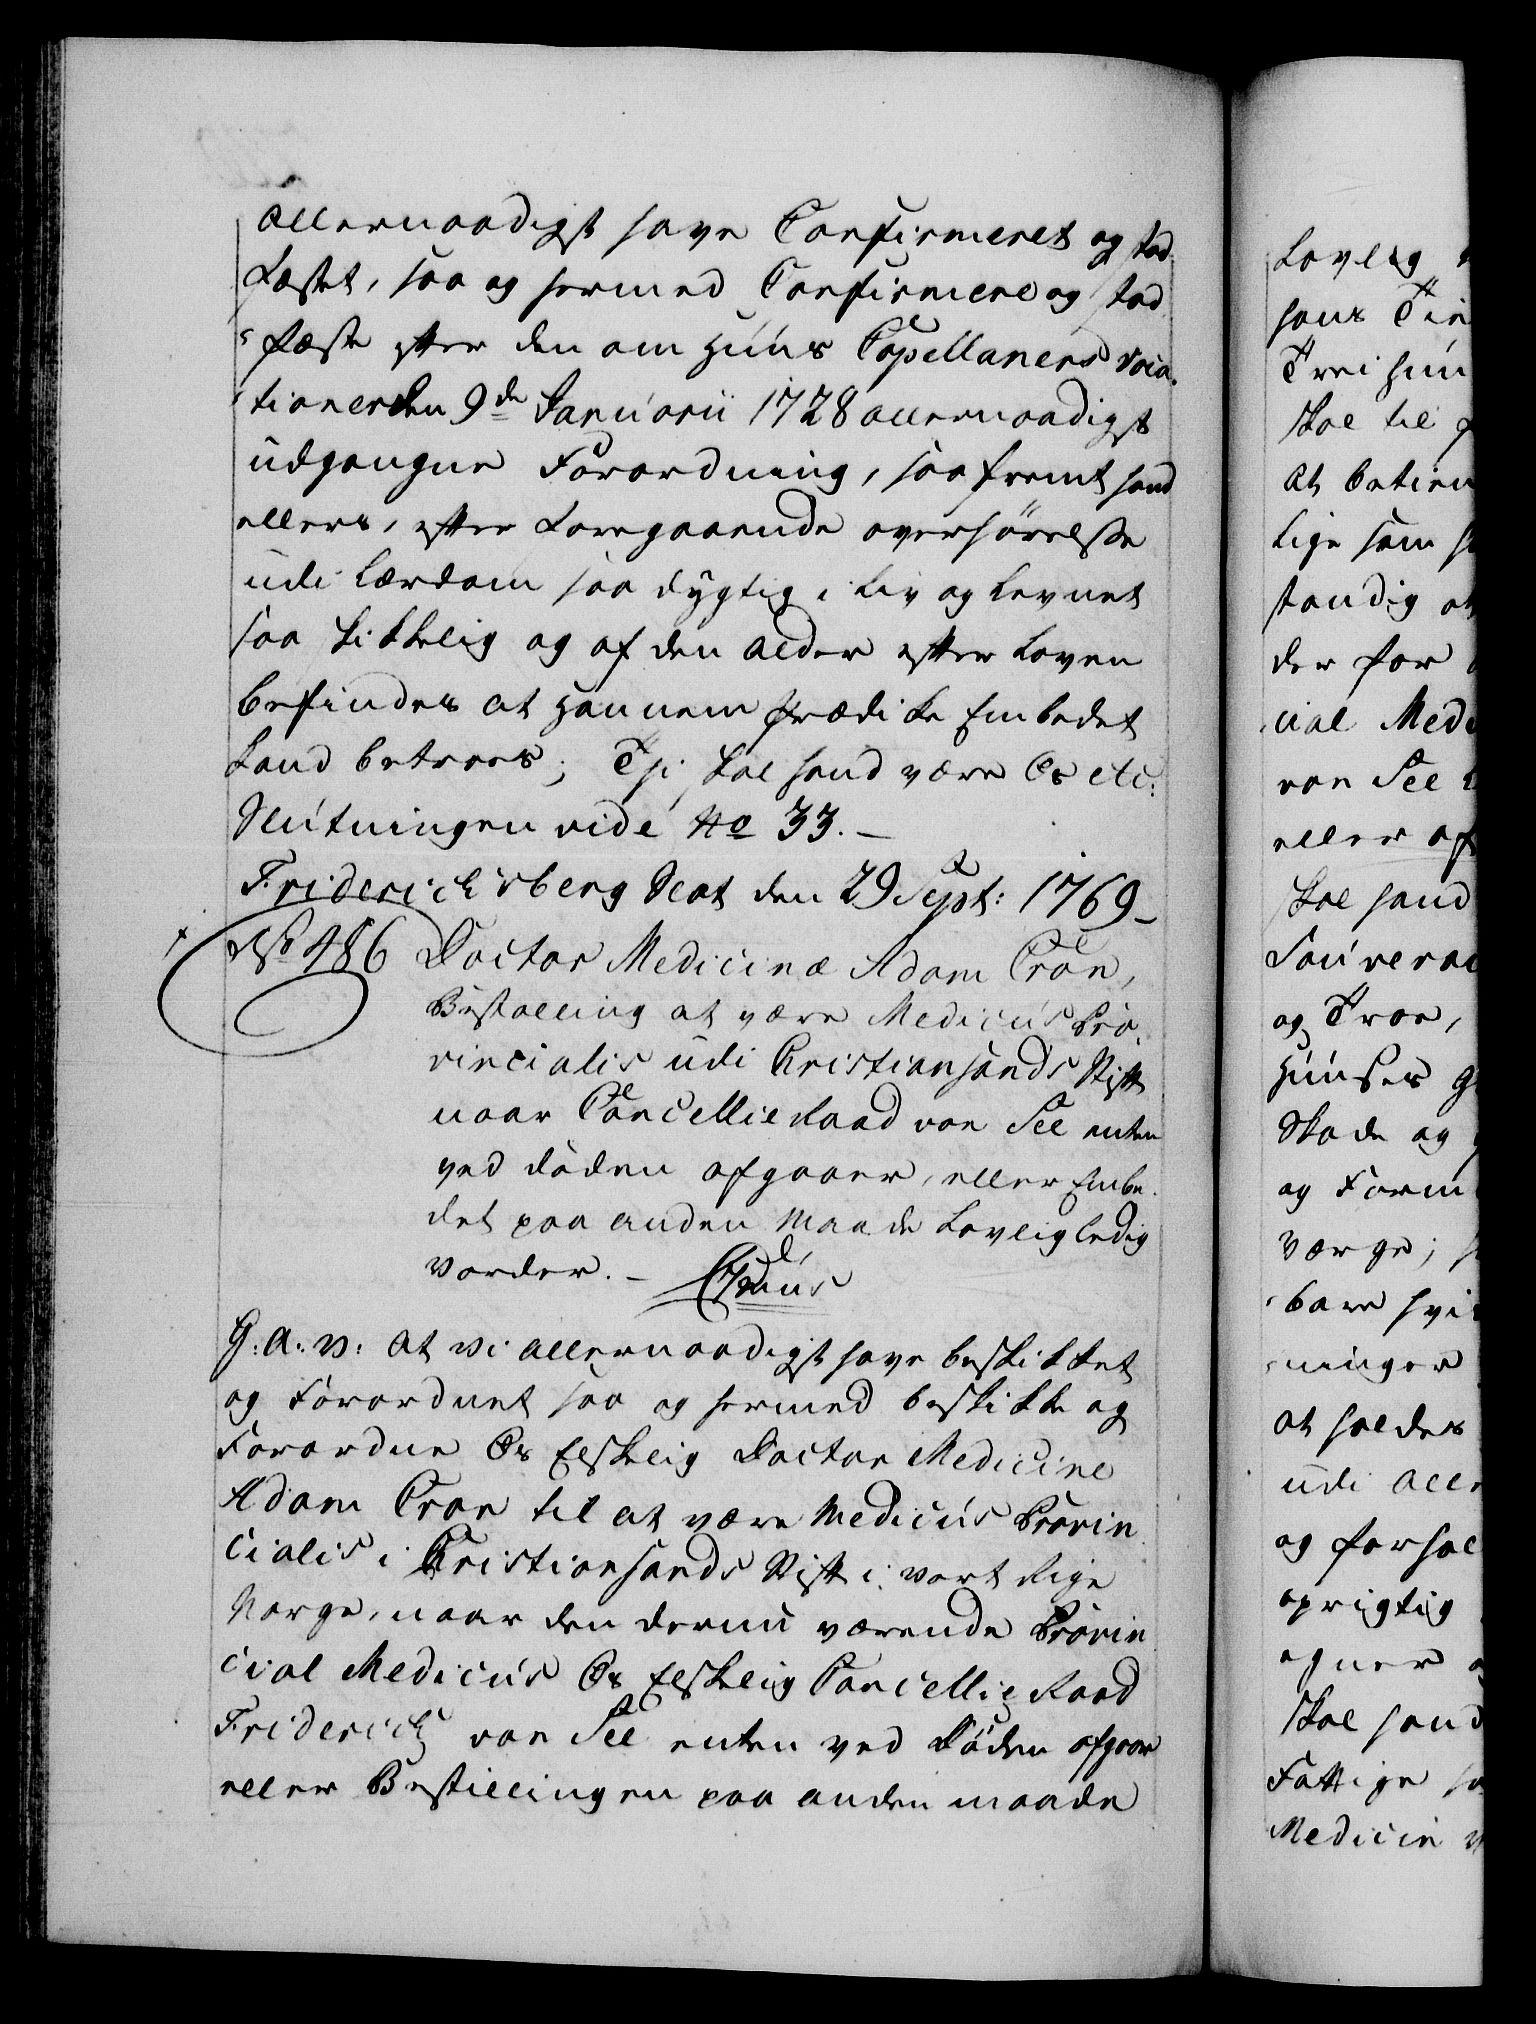 allernaadigst have Confirmeret og stad
fæstet, saa og hermed Confirmere og stad
fæste efter den om Huus Capellaners Voca-
tioner den 9de Januarii 1728 allernaadigst
udgangne Forordning, saa fremt hand
ellers, efter foregaaende overhørelse
udi Lærdom saa dygtig, i Liv og Levnet
saa skikkelig og af den alder efter Loven
befindes at hannem prædike Embedet
kand betroes; Thi skal hand være Os etc:
Slutningen vide No 33. —
Friderichsberg Slot den 29 Sept: 1769 —
No 486 Doctor Medicinæ Adam Cron,
Bestalling at være Medicus Pro-
vincialis udi Christiansands Stift
naar Cancellie Raad von See enten
ved døden afgaaer, eller Embe-
det paa anden Maade lovlig ledig
vorder. —
G: A: V: at vi allernaadigst have beskikket
og Forordnet saa og hermed beskikke og
Forordne Os Elskelig Doctor Medicine
Adam Cron til at være Medicus Provin
cialis i Christiansands Stift i vort Rige
Norge, naar den der nu værende Provin
cial Medicus Os Elskelig Cancellie Raad
Friderich von See enten ved Døden afgaar
eller Bestillingen paa anden maade
Lovlig
hans
Troe
skal til
at betien
lige som
standig at
der for
cial Med
von See
eller af
skal hand
Souverai
og Troe,
Huuses
Skade og
og Form
værge;
bare
ninger
at holdes
udi alle
og forhol
oprigtig
egner
skal hand
Fattige
Medicin